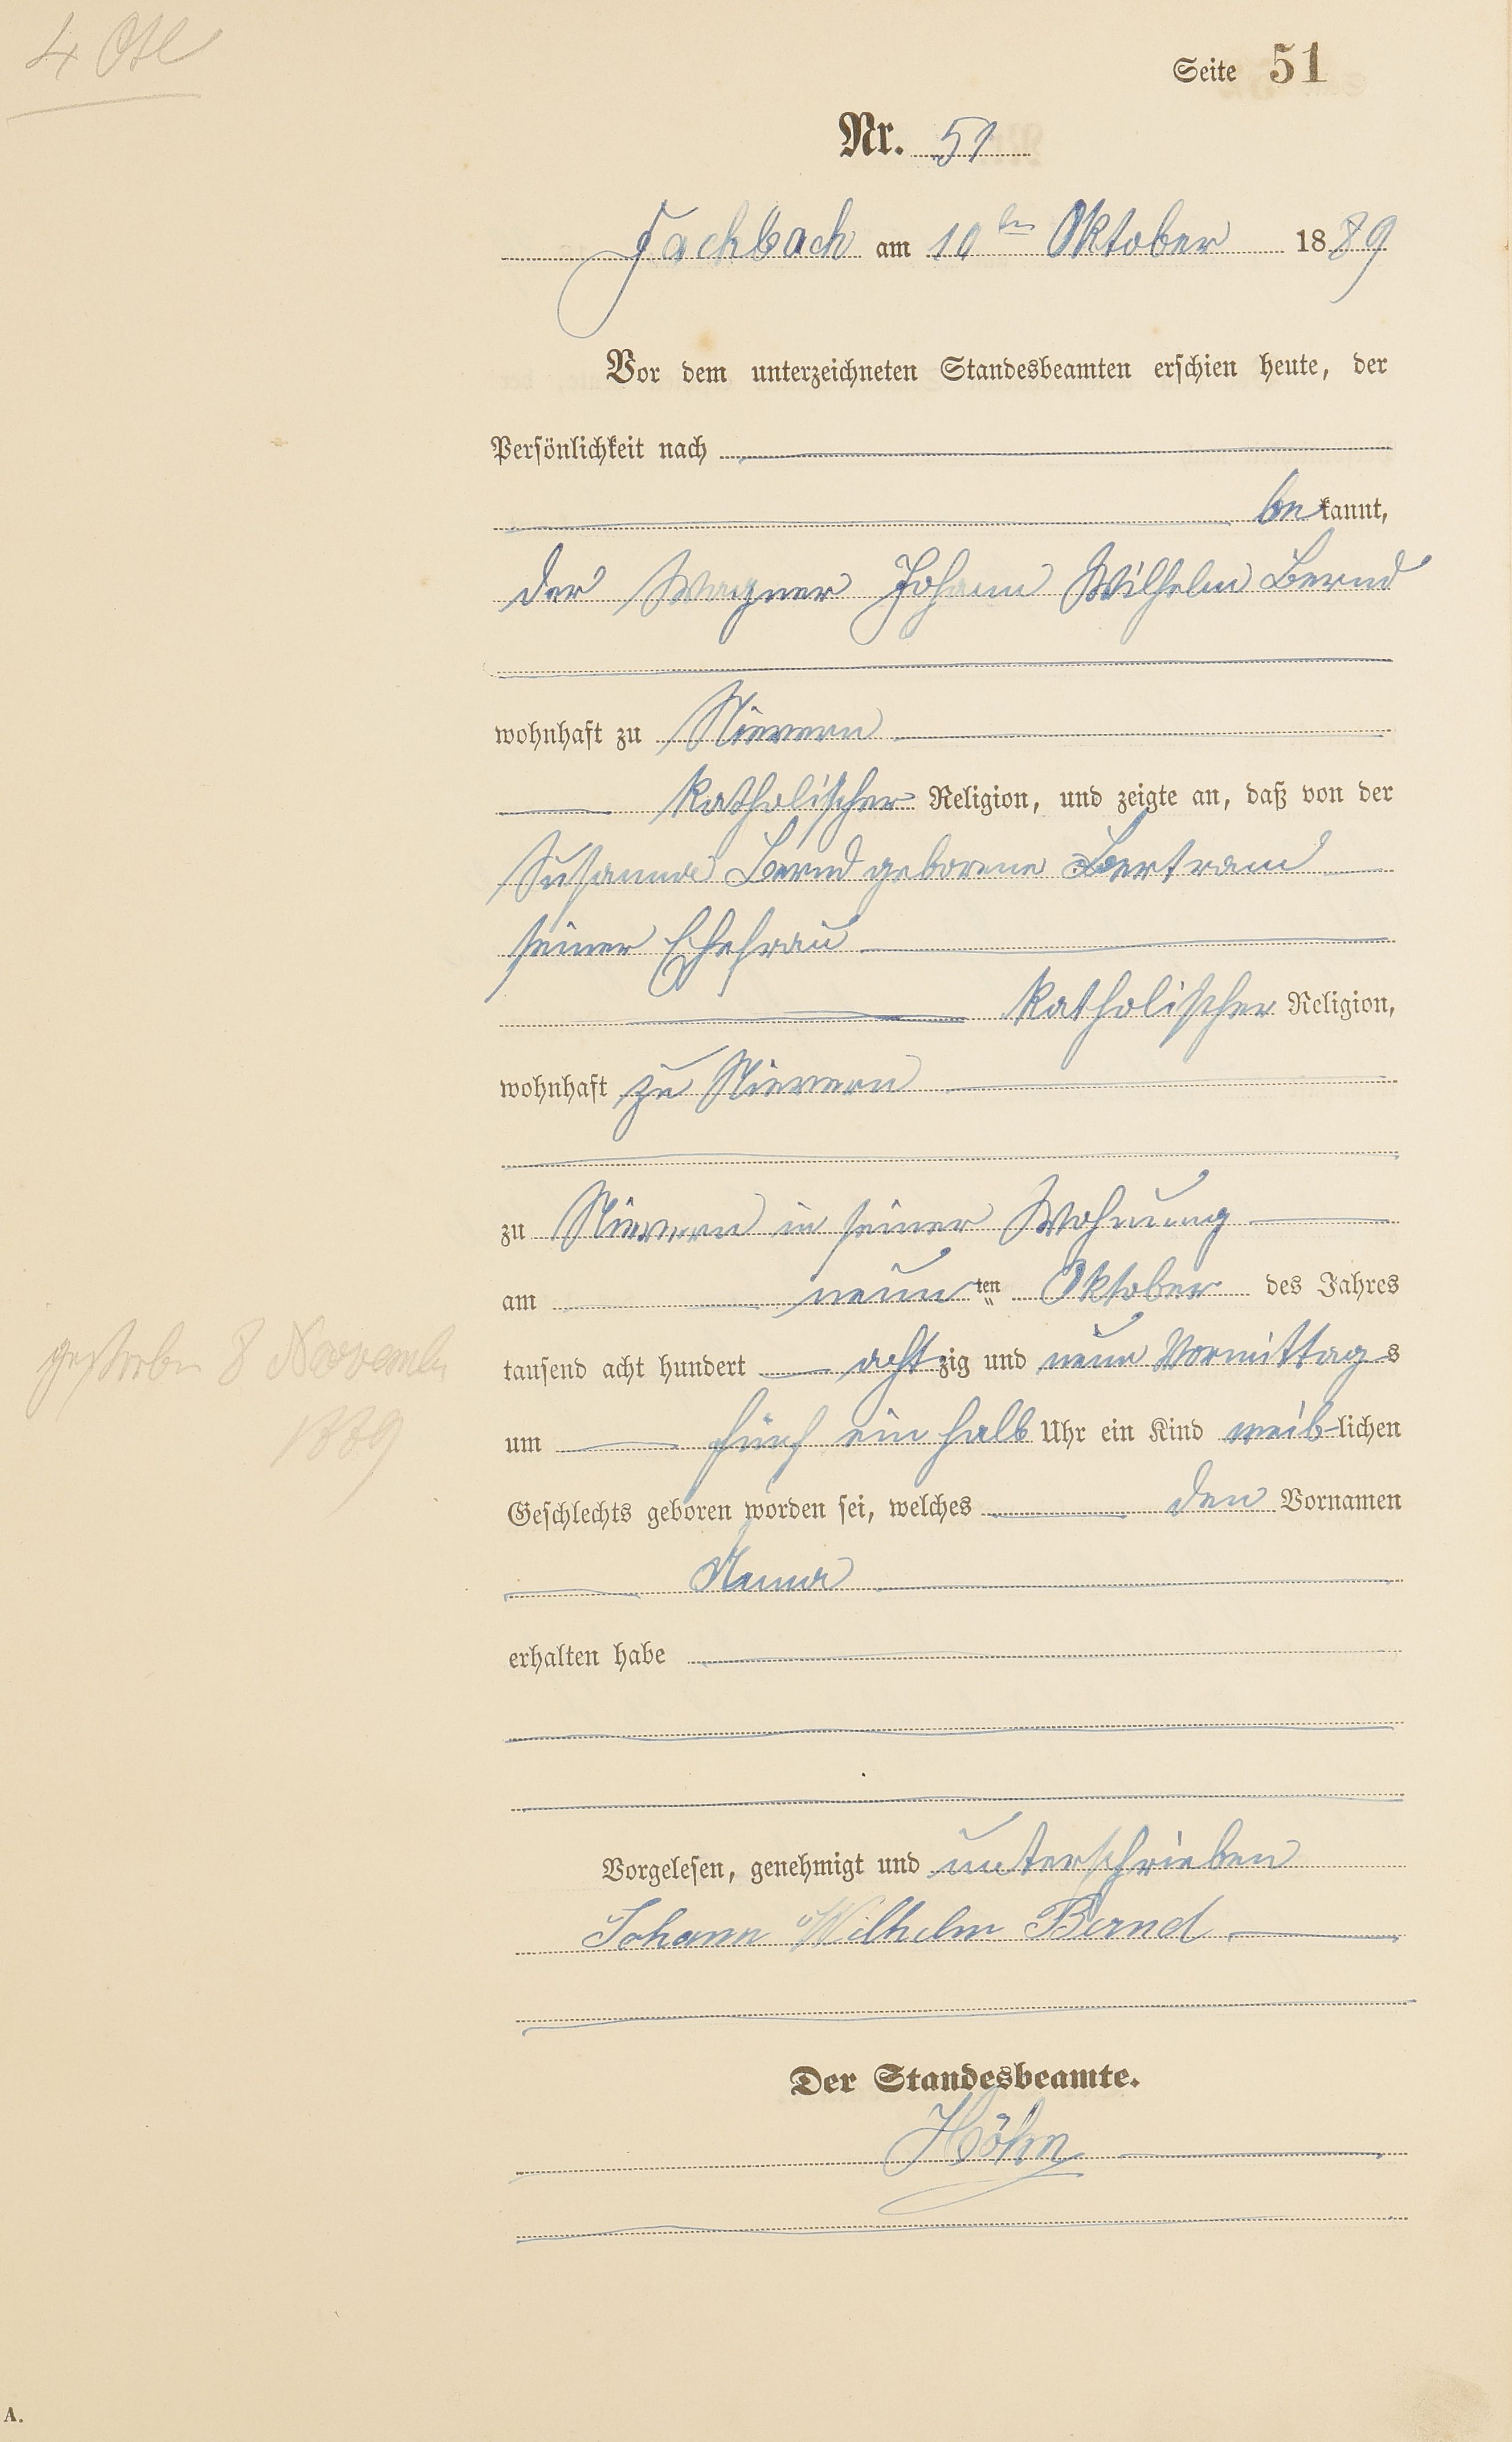 Seite 51
Nr. 51
Fachbach am 10ten Oktober 1889
Vor dem unterzeichneten Standesbeamten erschien heute, der
Persönlichkeit nach
bekannt,
der Wagner Johann Wilhelm Bernd
wohnhaft zu Nievern
katholischer Religion, und zeigte an, daß von der
Susanna Bernd geborene Bertram
seiner Ehefrau
katholischer Religion,
wohnhaft zu Nievern
zu Nievern in seiner Wohnung
am neunten Oktober des Jahres
gestorben 8 November
1889
tausend acht hundert achtzig und neun Vormittags
um fünf ein halb Uhr ein Kind weiblichen
Geschlechts geboren worden sei, welches den Vornamen
Anna
erhalten habe
Vorgelesen, genehmigt und unterschrieben
Johann Wilhelm Bernd
Der Standesbeamte.
Höhn
A.